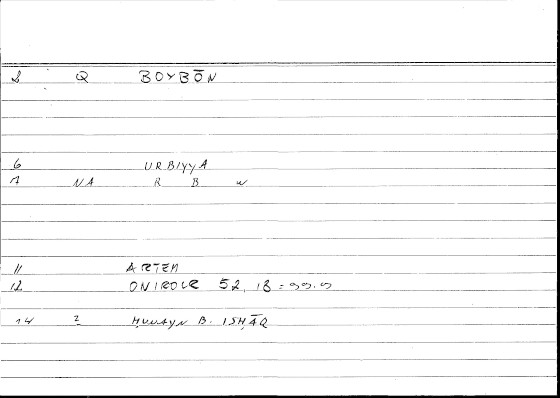 8 Q BOYBŌN
6 URBIYYA
7 NA R B w
11 ARTEM
12 ONIROCR 52, 18 =
14 2 ḤUNAYN B. ISḤĀQ